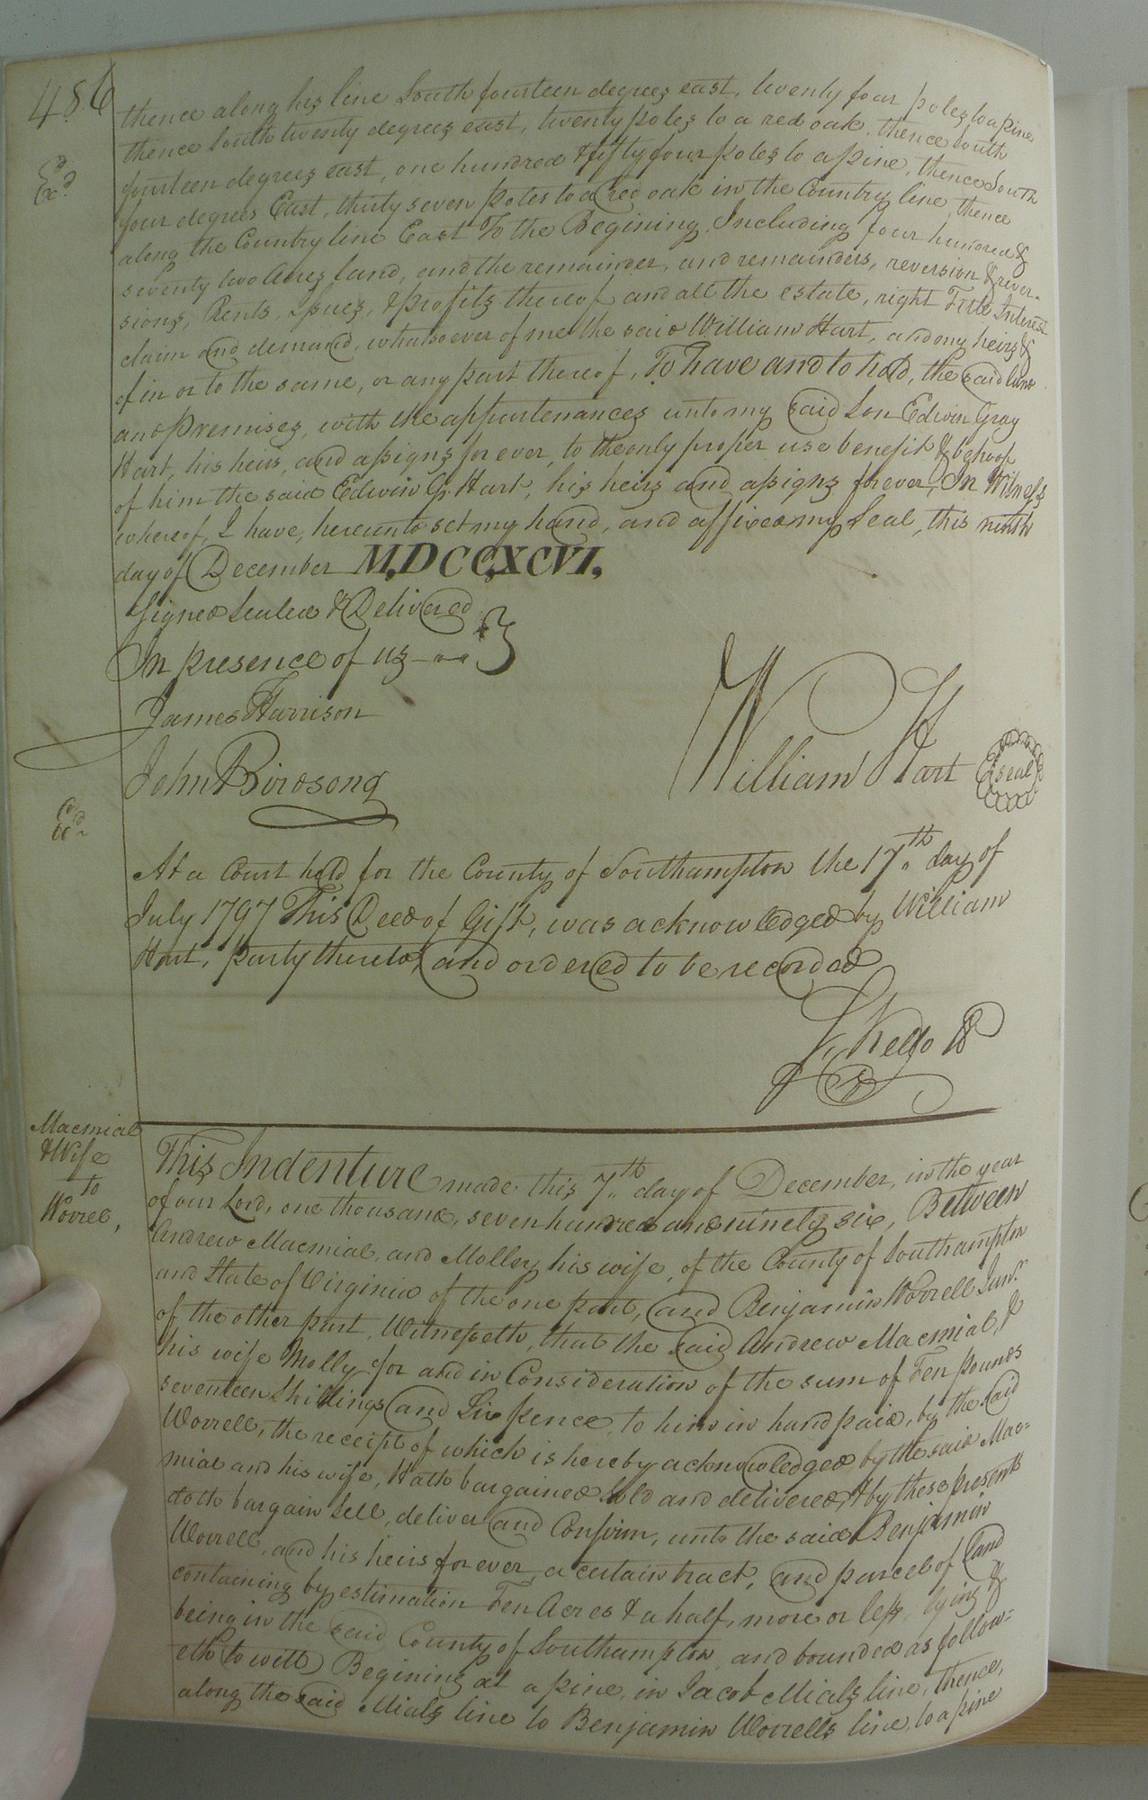 486
thence along his line South fourteen degrees east, twenty four poles to a pine
thence South twenty degrees east, twenty poles to a red oak, thence South
fourteen degrees east, one hundred & fifty four poles to a pine, thence South
four degrees East, thirty seven poles to a red oak in the Country line, thence
along the Country line East To the Begining, Including four hundred &
seventy two Acres land, and the remainder, and remainders, reversion & rever-
sions, Rents, Issues, & profits thereof and all the estate, right Title Interest
claim and demand, whatsoever of me the said William Hart, and my heirs &
of in or to the same, or any part thereof, To have and to hold, the said land
and premises, with the appurtenances unto my said Son Edwin Gray
Hart, his heirs, and assigns for ever, to the only proper use benefit & behoof
of him the said Edwin G. Hart, his heirs and assigns forever, In Witness
whereof, I have, hereunto set my hand, and affixed my Seal, this ninth
day of December M,DCC,XCVI,
Signed Sealed & Delivered
In presence of us
James Harrison
John Birdsong
William Hart (seal)
At a Court held for the County of Southampton the 17th day of
July 1797 This Deed of Gift, was acknowledged by William
Hart, party thereto, and ordered to be recorded
Kello
Macmial
& Wife
to
Worrel,
This Indenture made this 7th day of December, in the year
of our Lord, one thousand, seven hundred and ninety six, Between
Andrew Macmial, and Molley his wife, of the County of Southampton
and State of Virginia of the one part, and Benjamin Worrell Junr
of the other part, Witnesseth, that the said Andrew Macmial, &
his wife Molly for and in Consideration of the sum of Ten pounds
seventeen Shillings and Six pence, to him in hand paid, by the said
Worrell, the receipt of which is hereby acknowledged by the said Mac-
mial and his wife, Hath bargained Sold and delivered, & by these presents
doth bargain Sell, deliver and Confirm, unto the said Benjamin
Worrell, and his heirs for ever, a certain tract, and parcel of land
containing by estimation Ten Acres & a half, more or less, lying &
being in the said County of Southampton, and bounded as follow-
eth (to witt) Begining at a pine, in Jacob Mials line, thence,
along the said Mials line to Benjamin Worrells line, to a pine